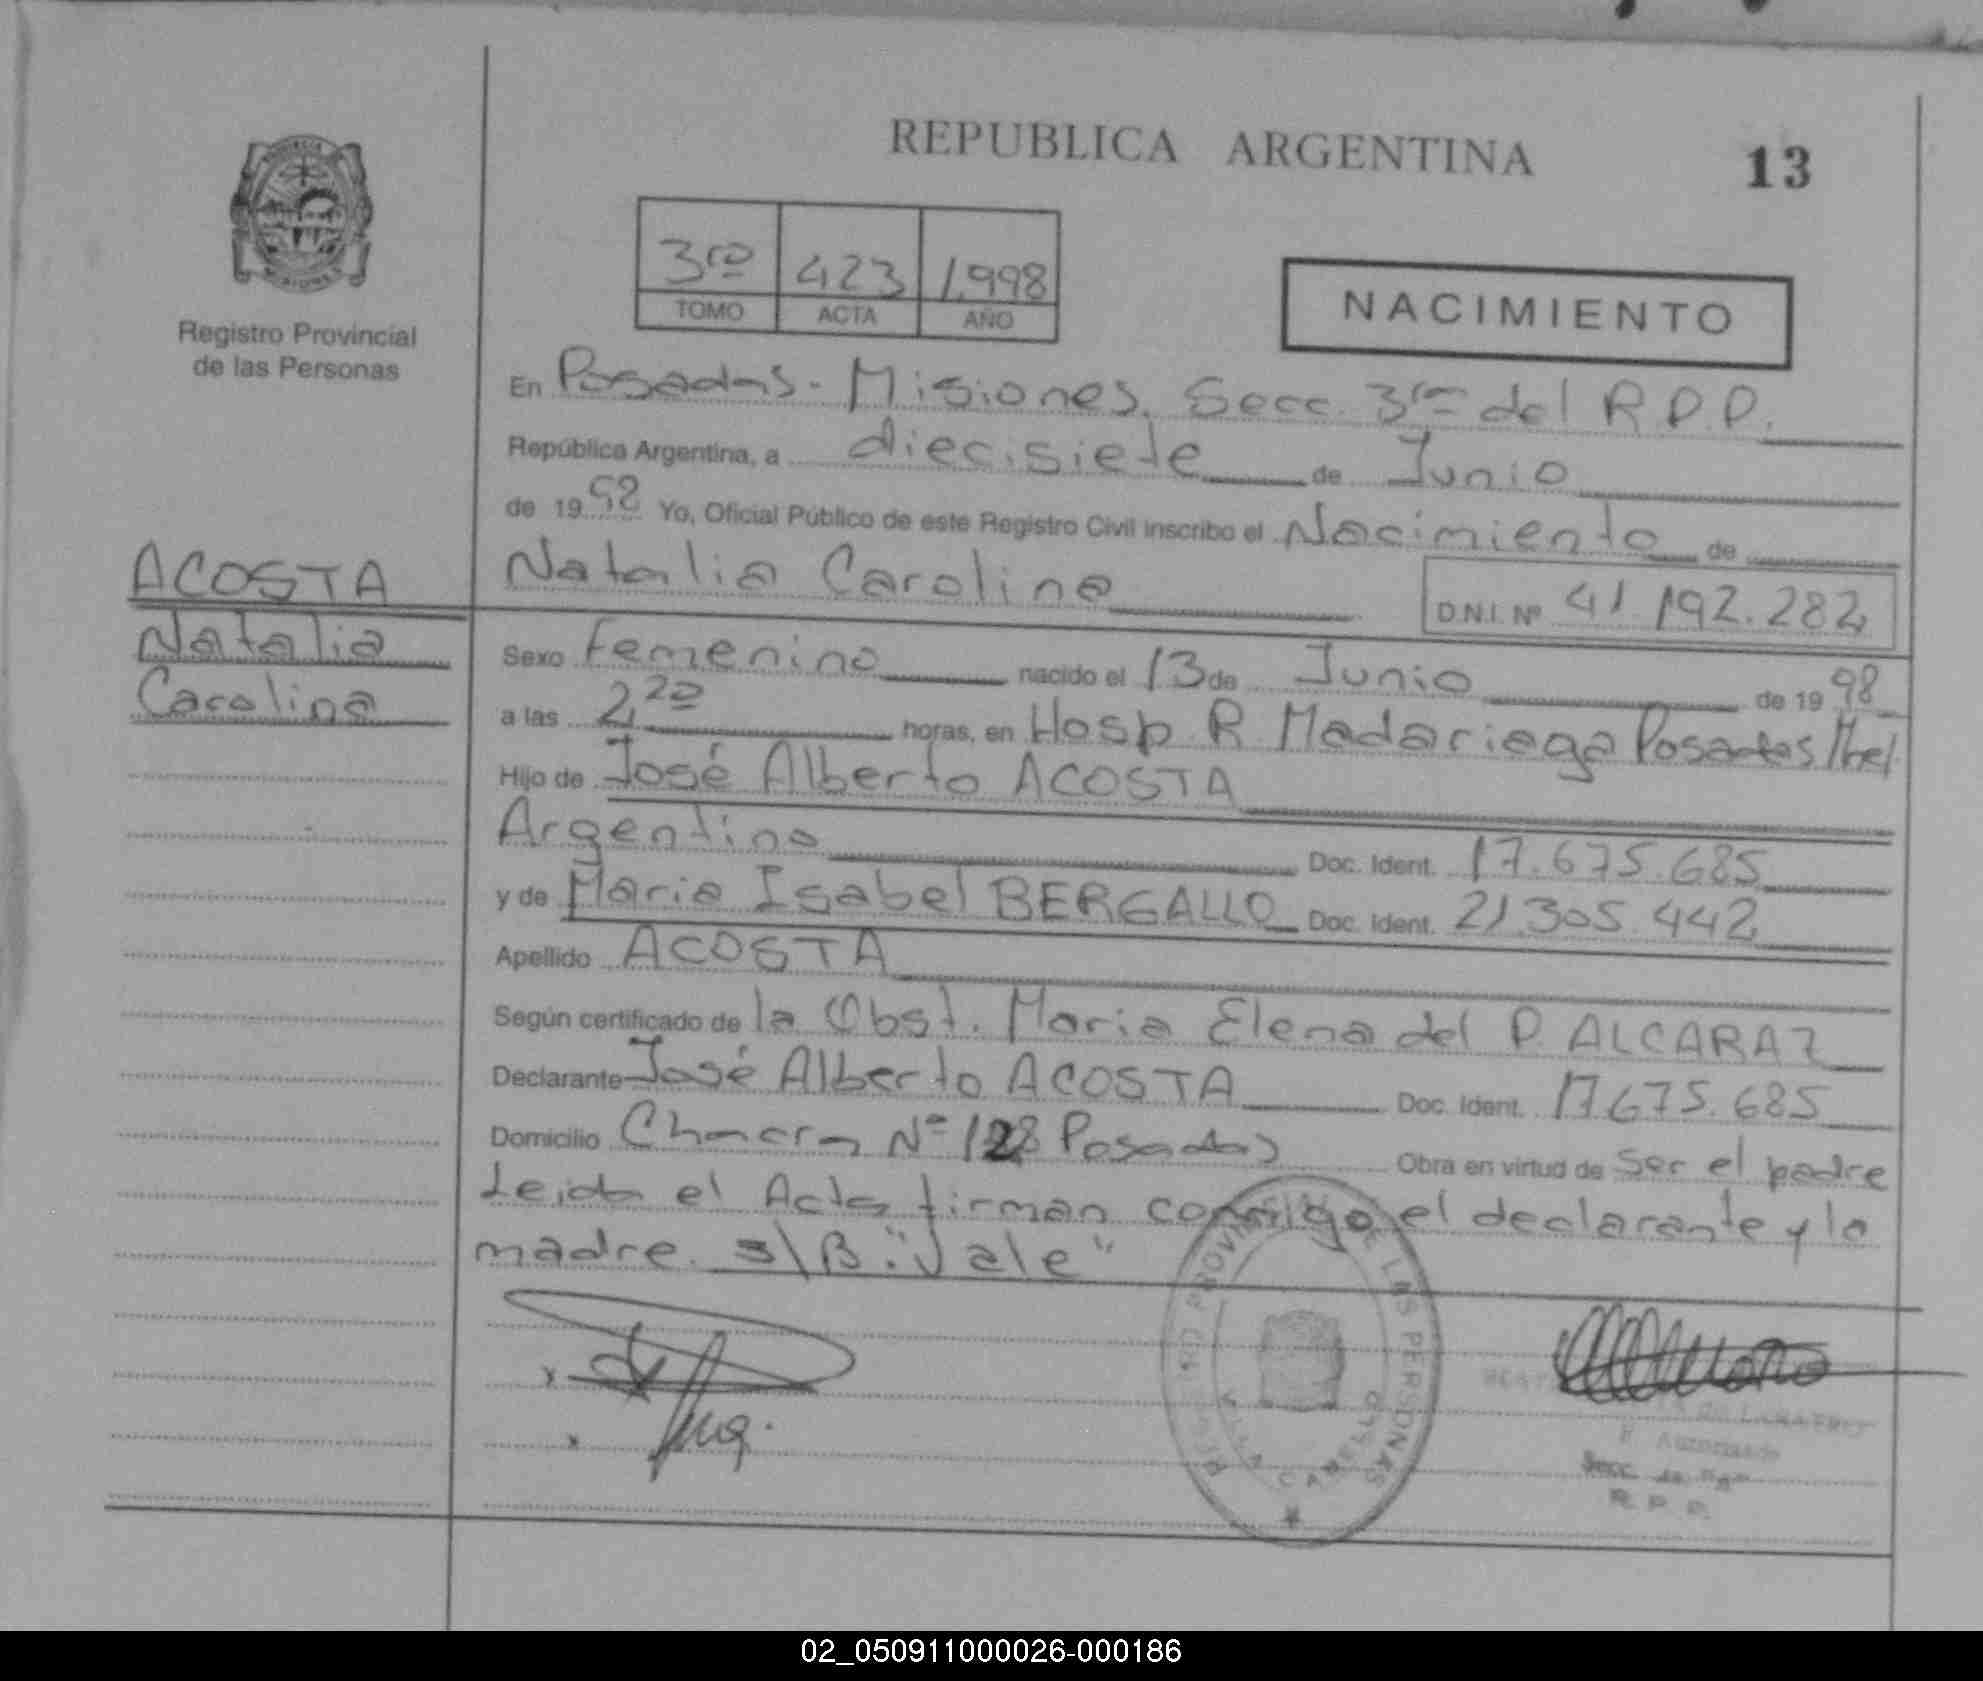 REPUBLICA ARGENTINA
13
Registro Provincial
de las Personas
3ro 423 1.998
TOMO ACTA AÑO
NACIMIENTO
En Posadas - Misiones. Secc. 3ra del R.P.P.
República Argentina, a diecisiete de Junio
de 1998 Yo, Oficial Público de este Registro Civil inscribo el Nacimiento de
Natalia Carolina D.N.I. Nº 41.192.282
ACOSTA
Natalia
Carolina
Sexo Femenino nacido el 13 de Junio de 1998
a las 2,20 horas, en Hosp. R. Madariaga Posadas
Hijo de José Alberto ACOSTA
Argentino Doc. Ident. 17.675.685
y de Maria Isabel BERGALLO Doc. Ident. 21.305.442
Apellido ACOSTA
Según certificado de la Obst. Maria Elena del P. ALCARAZ
Declarante José Alberto ACOSTA Doc. Ident. 17.675.685
Domicilio Chacra Nº 128 Posadas Obra en virtud de ser el padre
Leida el Acta firman conmigo el declarante y la
madre. s/B: "Vale"
REGISTRO PROVINCIAL DE LAS PERSONAS
VILLA CABELLO
Autorizado
Secc.
R. P. P.
02_050911000026-000186